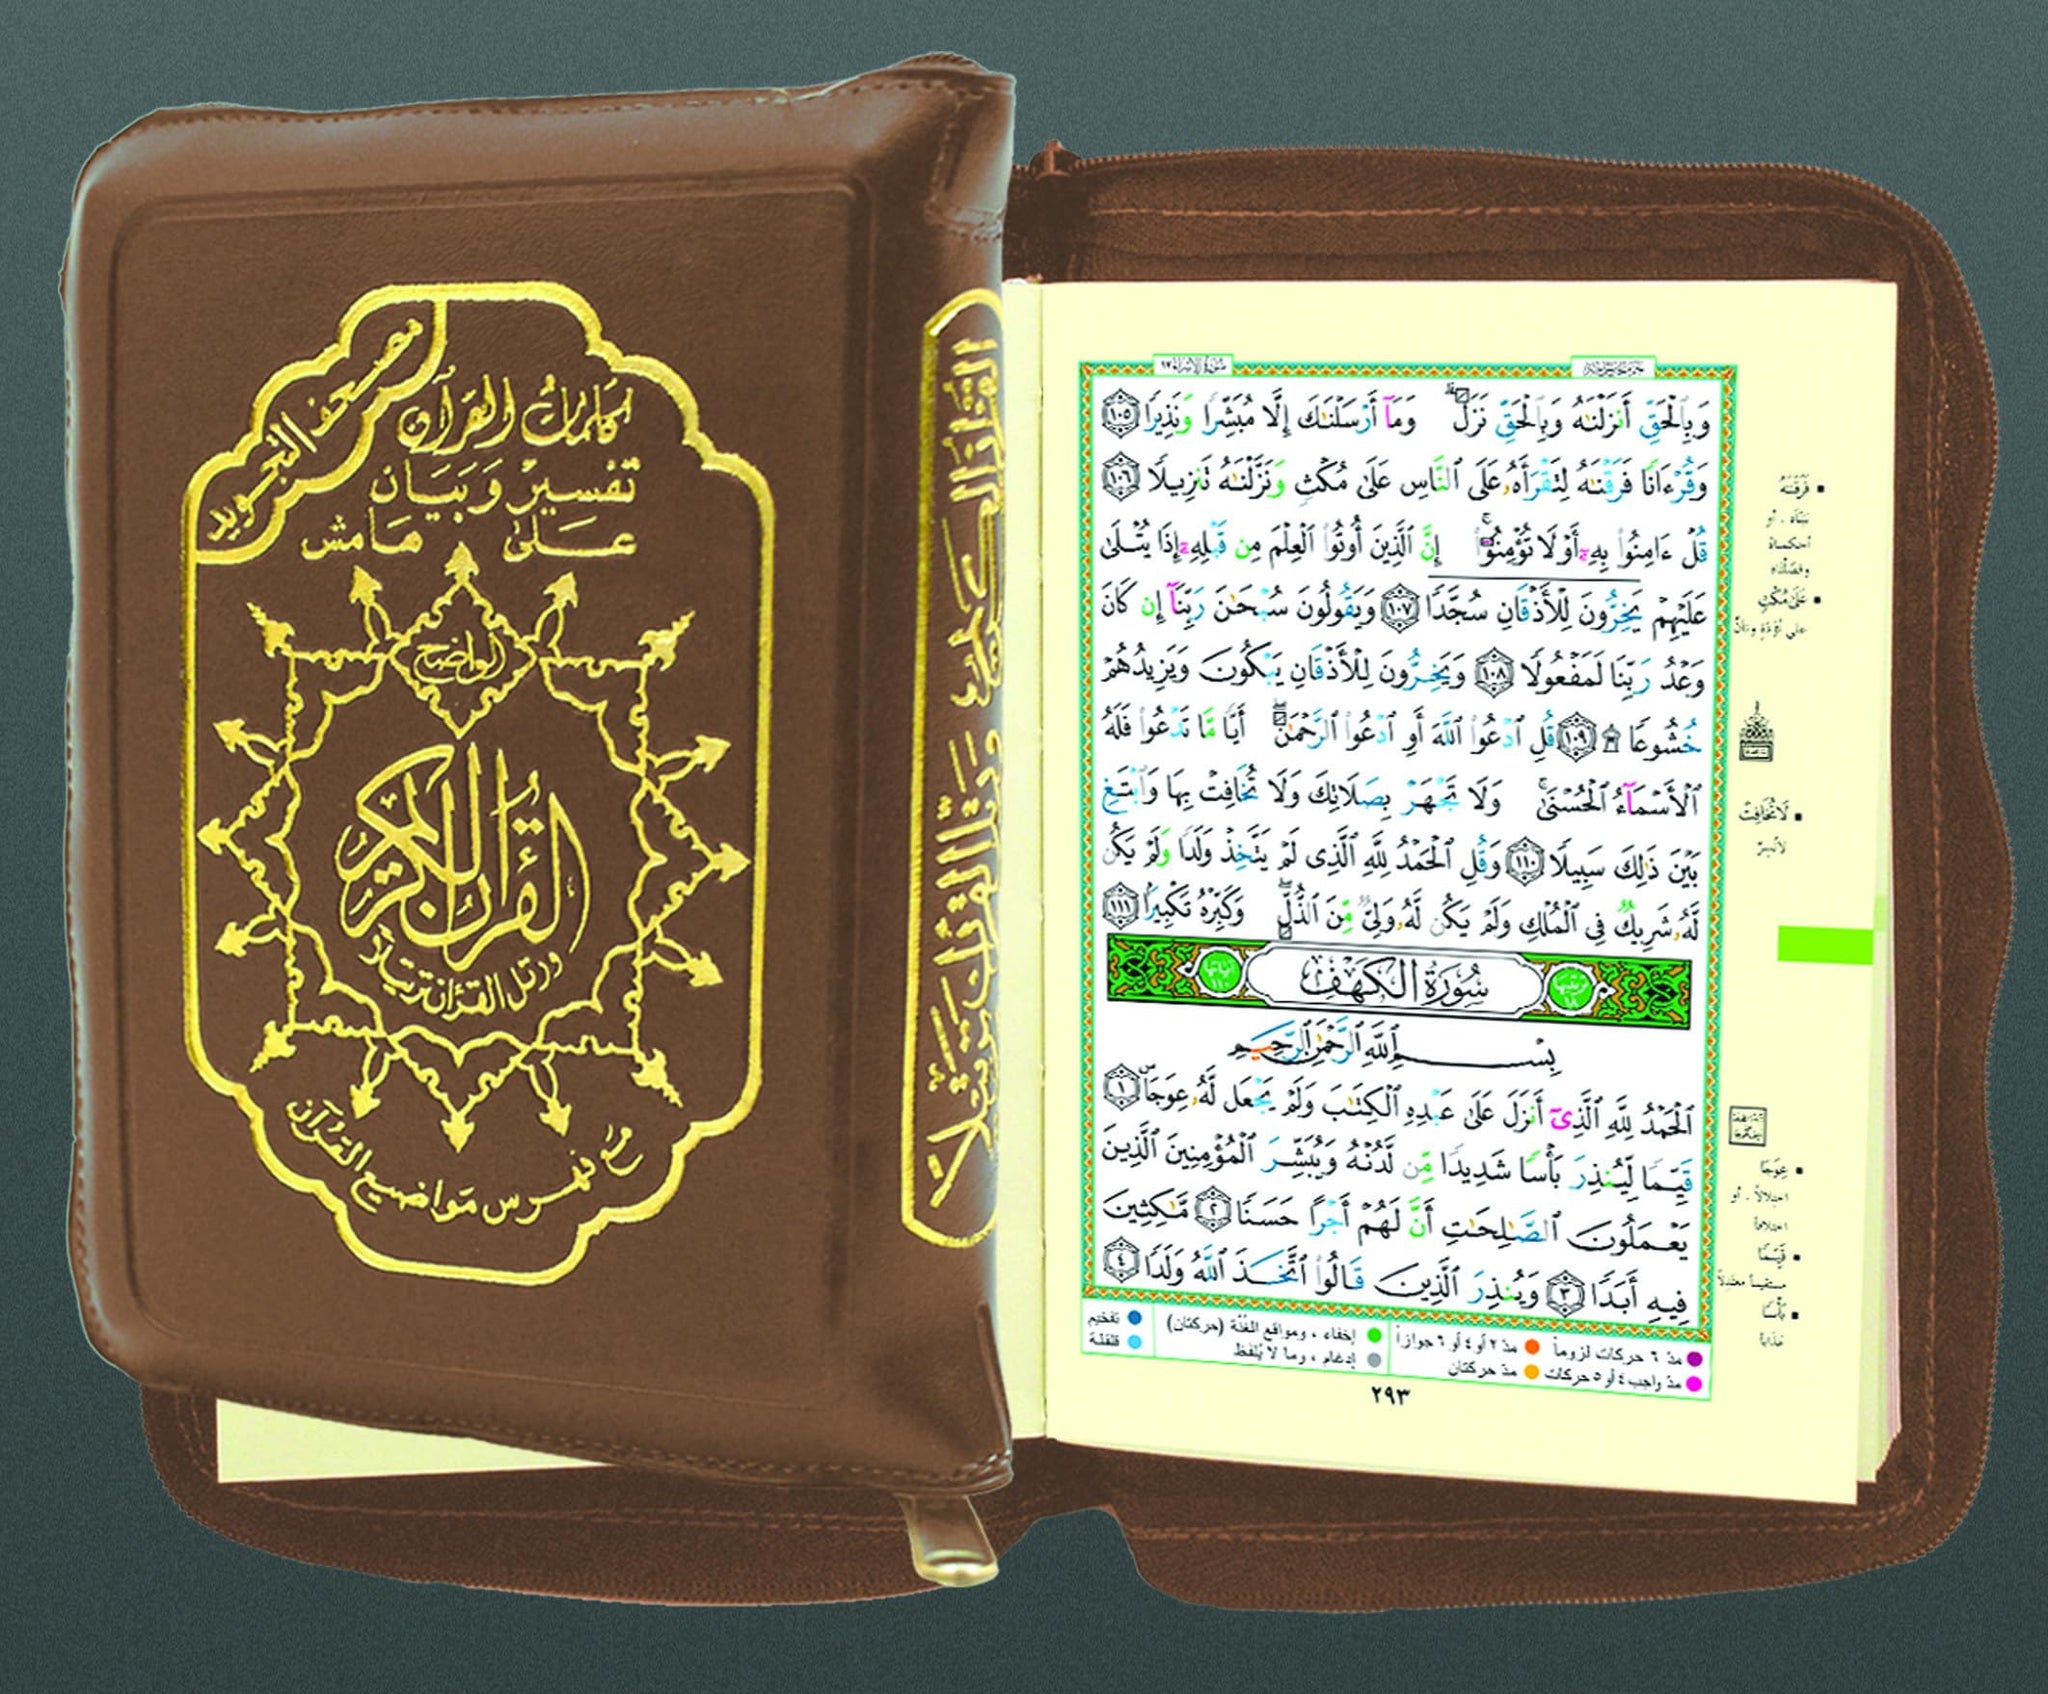 مصحف التجويد
كلمات القرآن
تفسير وبيان
على هامش
الواضح
القرآن الكريم
ورتل القرآن ترتيلا
مع فهرس مواضيع القرآن
ورتل القرآن ترتيلا
سُورَةُ الإِسْرَاء ١٧
وَبِٱلْحَقِّ أَنزَلْنَٰهُ وَبِٱلْحَقِّ نَزَلَ ۗ وَمَآ أَرْسَلْنَٰكَ إِلَّا مُبَشِّرًا وَنَذِيرًا ١٠٥
وَقُرْءَانًا فَرَقْنَٰهُ لِتَقْرَأَهُۥ عَلَى ٱلنَّاسِ عَلَىٰ مُكْثٍ وَنَزَّلْنَٰهُ تَنزِيلًا ١٠٦
قُلْ ءَامِنُوا۟ بِهِۦٓ أَوْ لَا تُؤْمِنُوٓا۟ ۚ إِنَّ ٱلَّذِينَ أُوتُوا۟ ٱلْعِلْمَ مِن قَبْلِهِۦٓ إِذَا يُتْلَىٰ
عَلَيْهِمْ يَخِرُّونَ لِلْأَذْقَانِ سُجَّدًا ١٠٧ وَيَقُولُونَ سُبْحَٰنَ رَبِّنَآ إِن كَانَ
وَعْدُ رَبِّنَا لَمَفْعُولًا ١٠٨ وَيَخِرُّونَ لِلْأَذْقَانِ يَبْكُونَ وَيَزِيدُهُمْ
خُشُوعًا ۩ ١٠٩ قُلِ ٱدْعُوا۟ ٱللَّهَ أَوِ ٱدْعُوا۟ ٱلرَّحْمَٰنَ ۖ أَيًّا مَّا تَدْعُوا۟ فَلَهُ
ٱلْأَسْمَآءُ ٱلْحُسْنَىٰ ۚ وَلَا تَجْهَرْ بِصَلَاتِكَ وَلَا تُخَافِتْ بِهَا وَٱبْتَغِ
بَيْنَ ذَٰلِكَ سَبِيلًا ١١٠ وَقُلِ ٱلْحَمْدُ لِلَّهِ ٱلَّذِى لَمْ يَتَّخِذْ وَلَدًا وَلَمْ يَكُن
لَّهُۥ شَرِيكٌ فِى ٱلْمُلْكِ وَلَمْ يَكُن لَّهُۥ وَلِىٌّ مِّنَ ٱلذُّلِّ ۖ وَكَبِّرْهُ تَكْبِيرًا ١١١
ترتيبها ١٨ سُورَةُ الكَهْفِ آياتها ١١٠
بِسْمِ ٱللَّهِ ٱلرَّحْمَٰنِ ٱلرَّحِيمِ
ٱلْحَمْدُ لِلَّهِ ٱلَّذِىٓ أَنزَلَ عَلَىٰ عَبْدِهِ ٱلْكِتَٰبَ وَلَمْ يَجْعَل لَّهُۥ عِوَجَا ۜ ١
قَيِّمًا لِّيُنذِرَ بَأْسًا شَدِيدًا مِّن لَّدُنْهُ وَيُبَشِّرَ ٱلْمُؤْمِنِينَ ٱلَّذِينَ
يَعْمَلُونَ ٱلصَّٰلِحَٰتِ أَنَّ لَهُمْ أَجْرًا حَسَنًا ٢ مَّٰكِثِينَ
فِيهِ أَبَدًا ٣ وَيُنذِرَ ٱلَّذِينَ قَالُوا۟ ٱتَّخَذَ ٱللَّهُ وَلَدًا ٤
فَرَقْنَاهُ
بيّناه . أو
أحكمناه
وفصّلناه
عَلَى مُكْثٍ
على تُؤَدَةٍ وتأنٍّ
لَا تُخَافِتْ
لا تُسِرّ
عِوَجًا
اختلالاً . أو
اختلافاً
قَيِّمًا
مستقيماً معتدلاً
بَأْسًا
عذاباً
مدّ ٦ حركات لزوماً
مدّ ٢ أو ٤ أو ٦ جوازاً
مدّ واجب ٤ أو ٥ حركات
مدّ حركتان
إخفاء ، ومواقع الغُنَّة (حركتان)
إدغام ، وما لا يُلفَظ
تفخيم
قلقلة
٢٩٣